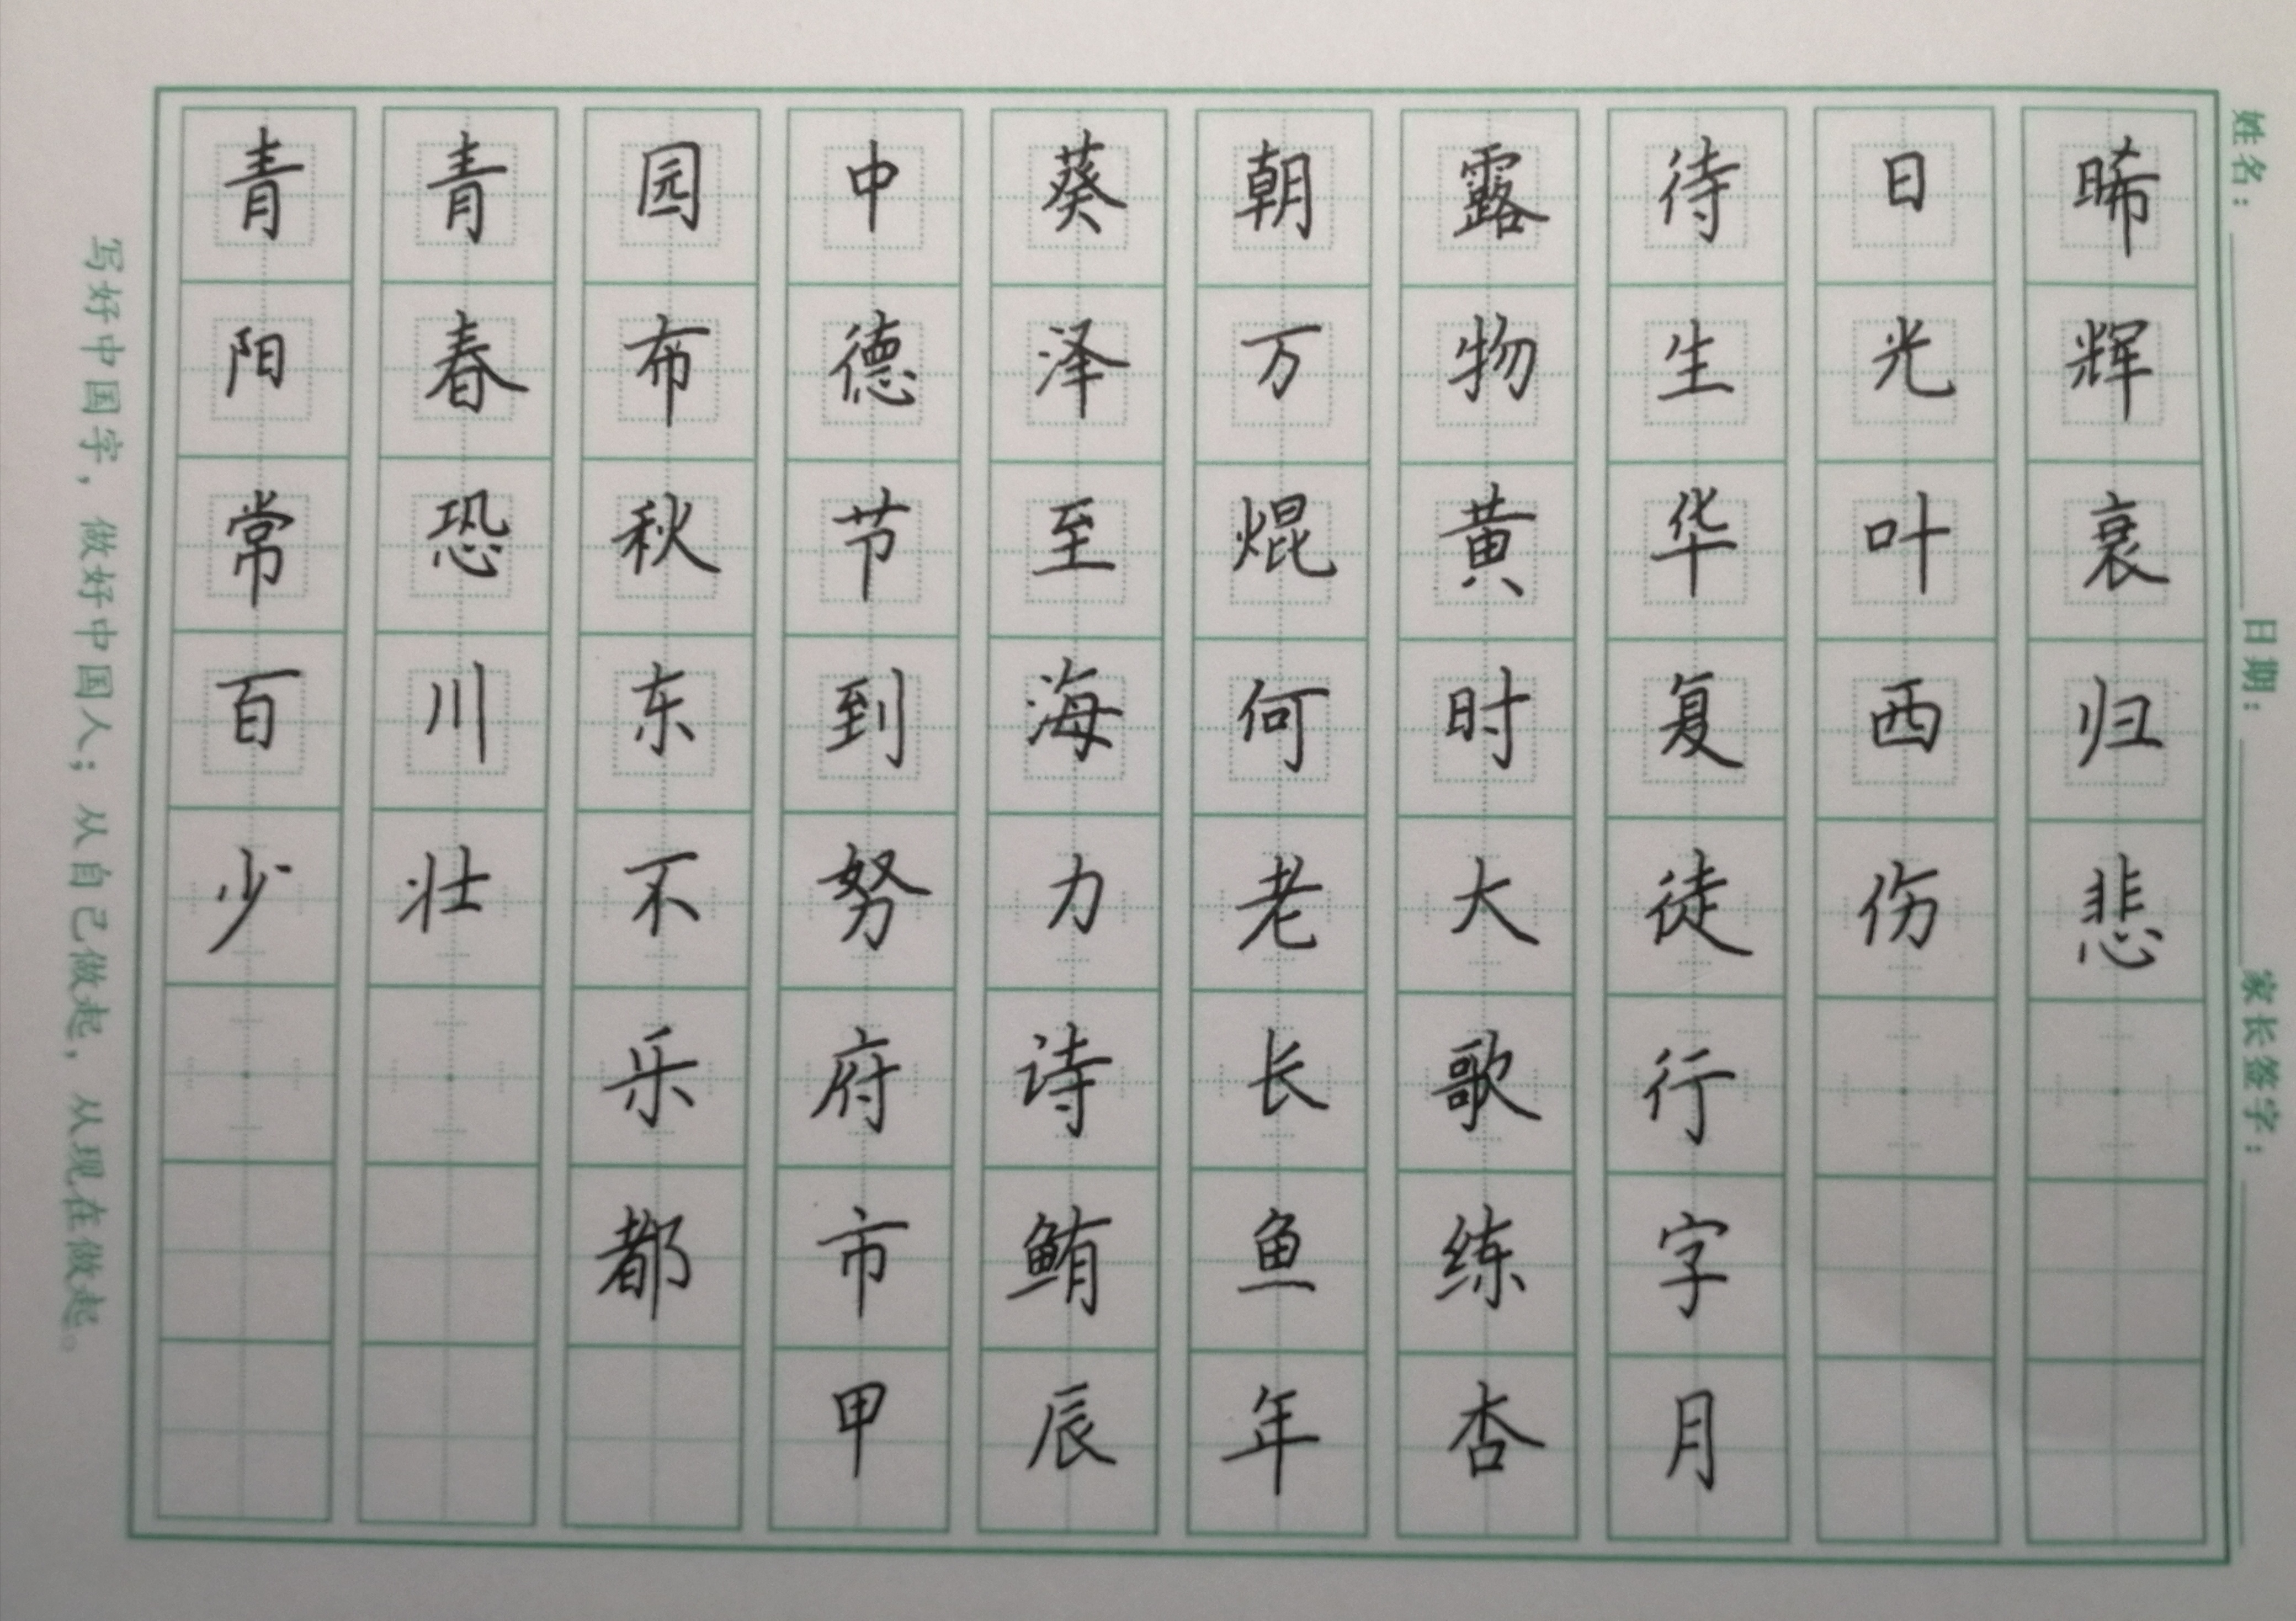 青青园中葵朝露待日晞
阳春布德泽万物生光辉
常恐秋节至焜黄华叶衰
百川东到海何时复西归
少壮不努力老大徒伤悲
乐府诗长歌行
都市鲔鱼练字
甲辰年杏月
姓名： 日期： 家长签字：
写好中国字，做好中国人；从自己做起，从现在做起。